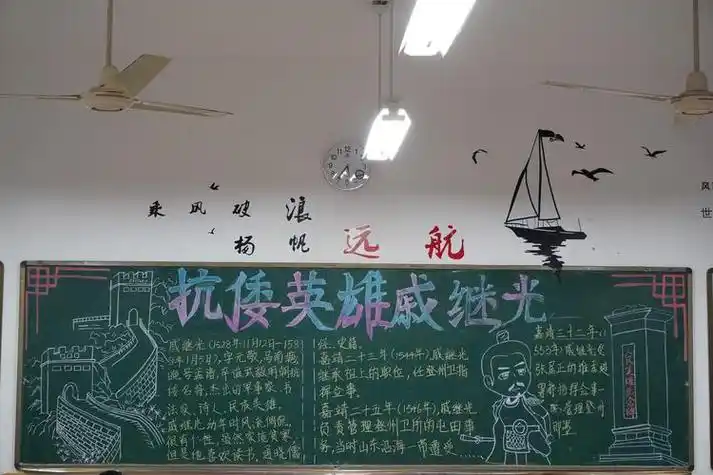 乘风破浪
扬帆远航
风
世
抗倭英雄戚继光
戚继光(1528年11月12日-158
年1月5日),字元敬,号南塘,
晚号孟诸,卒谥武毅,明朝抗
倭名将,杰出的军事家、书
法家、诗人、民族英雄。
戚继光幼年时风流倜傥,
很有个性,虽然家境贫寒,
但是他喜欢读书,通晓儒
经、史籍。
嘉靖二十三年(1544年),戚继光
继承祖上的职位,任登州卫指
挥佥事。
嘉靖二十五年(1546年),戚继光
负责管理登州卫所的屯田事
务,当时山东沿海一带遭受……
嘉靖三十二年(1
553年)戚继光受
张居正的推荐
署都指挥佥事
管理登州
人民英雄永垂